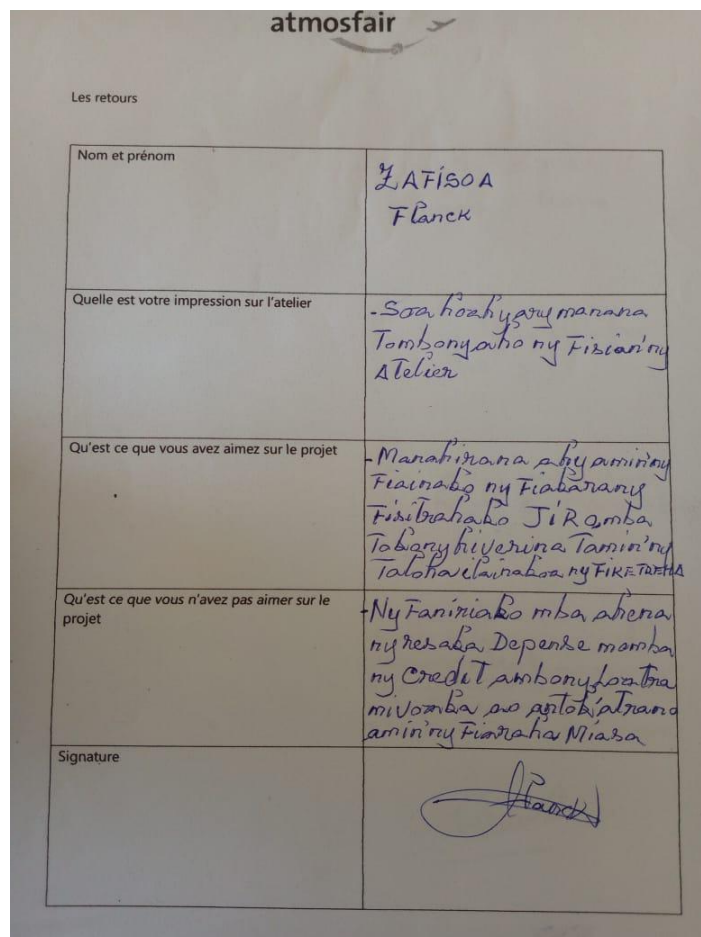 atmosfair
Les retours
Nom et prénom
ZAFISOA
Flanck
Quelle est votre impression sur l'atelier
-Soa hoahy ary manana
Tombony aho ny Fisian'ny
Atelier
Qu'est ce que vous avez aimez sur le projet
- Manahirana ahy amin'ny
Fiainako ny Fiakarany
Fisitrahako JIRO mba
hiverina Tamin'ny
Taloha ilainakoa ny FIKETREHA
Qu'est ce que vous n'avez pas aimer sur le
projet
-Ny Faniriako mba ahena
ny resaka Depense momba
ny Credit ambony loatra
ao
amin'ny Fiaraha Miasa
Signature
Flanck